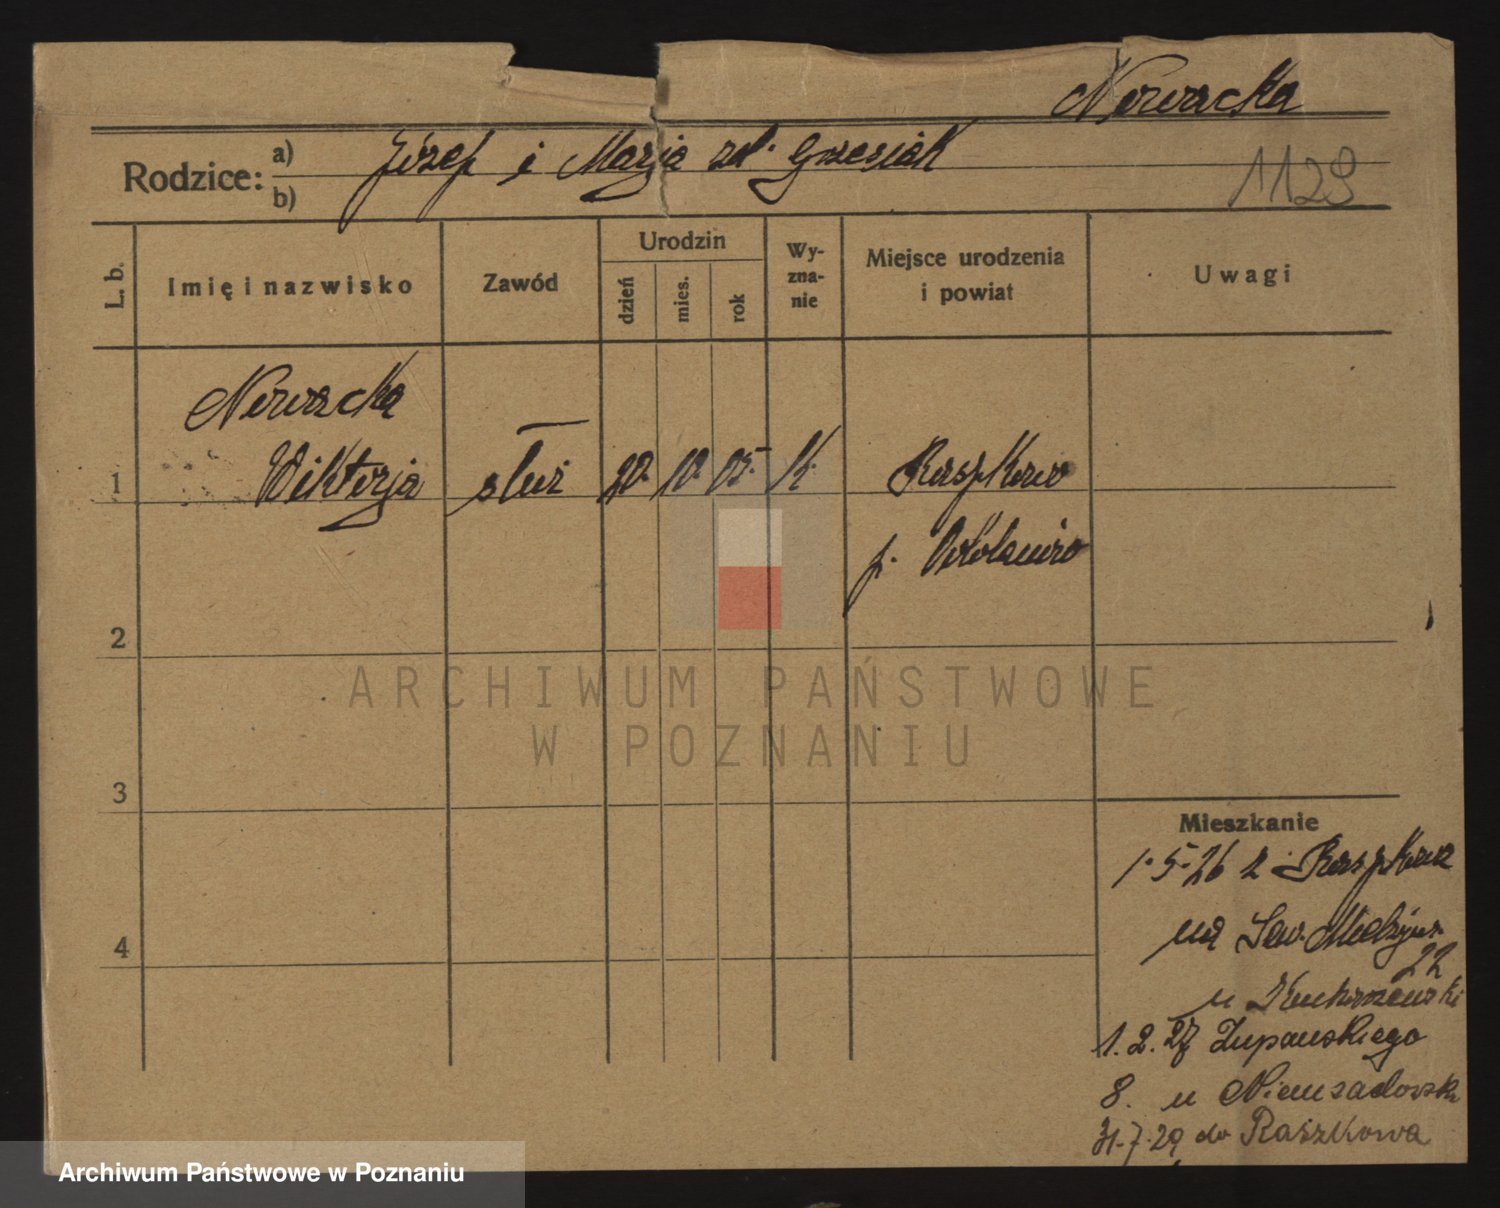 Nowacka
Rodzice: a) b) Józef i Marja zd. Grzesiak
1129
L. b. Imię i nazwisko Zawód Urodzin dzień mies. rok Wyznanie Miejsce urodzenia i powiat Uwagi
Nowacka
1 Wiktorja służ 20. 10. 05. K. Raszkowo
p. Odolanów
2
3
4
Mieszkanie
1.5.26 z Raszkowa
na Sew. Mielżyńs.
22
u
1.2.27 Żupańskiego
8. u
31.7.29 do Raszkowa
ARCHIWUM PAŃSTWOWE
W POZNANIU
Archiwum Państwowe w Poznaniu